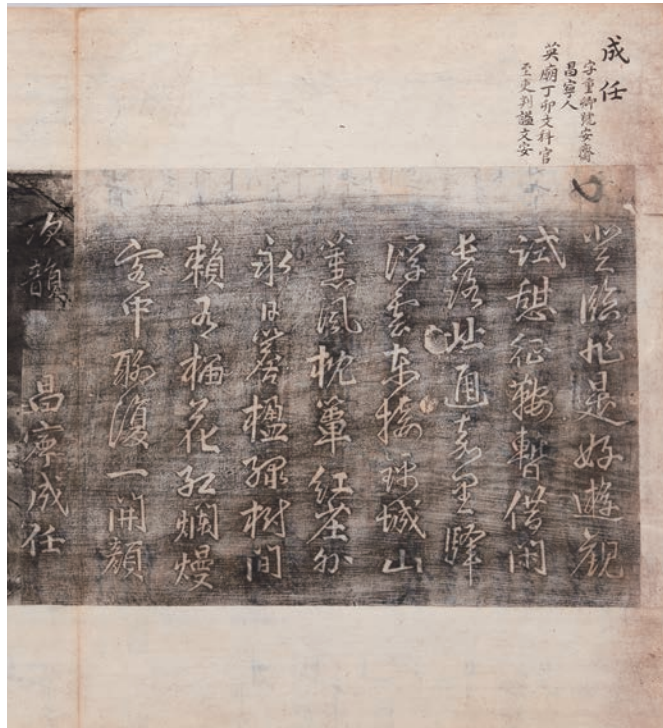 成任
字重卿號安齋
昌寧人
英廟丁卯文科官
至吏判謚文安
登臨非是好遊觀
試憩征鞍暫借閑
長路北通里驛
浮雲東接錦城山
薰風枕簟紅塵外
永日簷楹綠樹間
賴有榴花紅爛熳
客中聊復一開顔
次韻
昌寧成任